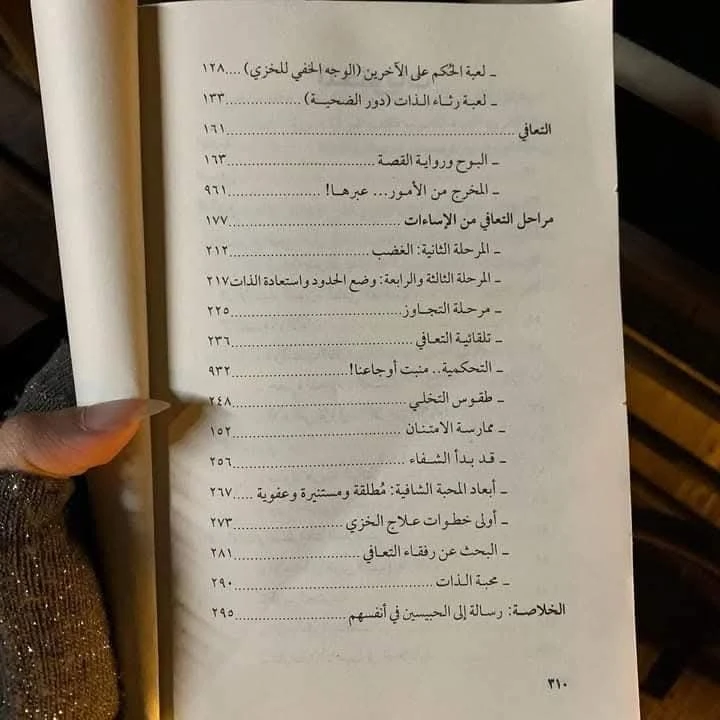 ـ لعبة الحُكم على الآخرين (الوجه الخفي للخزي) ....١٢٨
ـ لعبة رثاء الذات (دور الضحية) ..................١٣٣
التعافي .....................................................١٦١
ـ البوح ورواية القصة ...........................١٦٣
ـ المخرج من الأمور... عبرها! ...................٩٦١
مراحل التعافي من الإساءات ................................١٧٧
ـ المرحلة الثانية: الغضب ..........................٢١٢
ـ المرحلة الثالثة والرابعة: وضع الحدود واستعادة الذات٢١٧
ـ مرحلة التجاوز...............................٢٢٥
ـ تلقائية التعافي ................................٢٣٦
ـ التحكمية.. منبت أوجاعنا!......................٩٣٢
ـ طقوس التخلي ................................٢٤٨
ـ ممارسة الامتنان ...............................١٥٢
ـ قد بدأ الشفاء ................................٢٥٦
ـ أبعاد المحبة الشافية: مُطلقة ومستنيرة وعفوية .....٢٦٧
ـ أولى خطوات علاج الخزي .....................٢٧٣
ـ البحث عن رفقاء التعافي........................٢٨١
ـ محبة الذات ...................................٢٩٠
الخلاصة: رسالة إلى الحبيسين في أنفسهم ....................٢٩٥
٣١٠